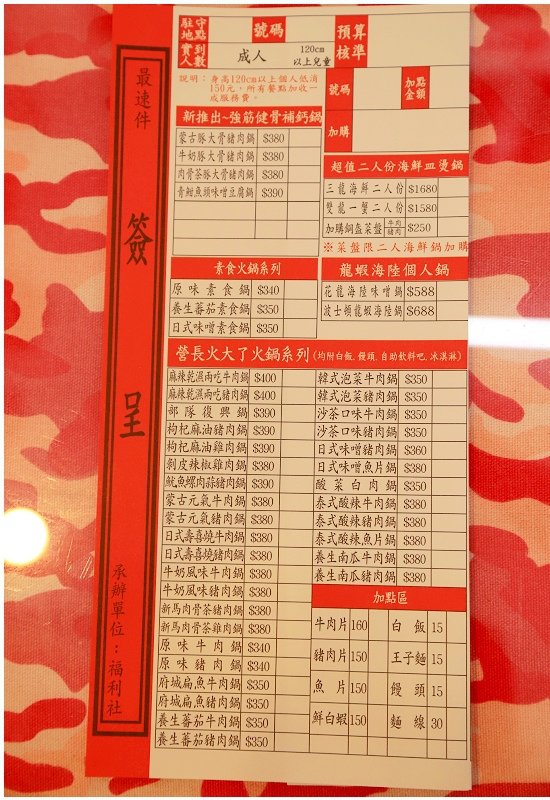 最速件
簽
呈
承辦單位：福利社
駐守地點
號碼
預算核準
實到人數
成人
120cm以上兒童
說明：身高120cm以上個人低消
150元，所有餐點加收一
成服務費。
號碼
加點金額
加購
新推出~強筋健骨補鈣鍋
蒙古豚大骨豬肉鍋 $380
牛奶豚大骨豬肉鍋 $380
肉骨茶豚大骨豬肉鍋 $380
青魽魚頭味噌豆腐鍋 $390
超值二人份海鮮皿燙鍋
三龍海鮮二人份 $1680
雙龍一蟹二人份 $1580
加購銅盤菜盤 牛肉 豬肉 $250
※菜盤限二人海鮮鍋加購
素食火鍋系列
原味素食鍋 $340
養生蕃茄素食鍋 $350
日式味噌素食鍋 $350
龍蝦海陸個人鍋
花龍海陸味噌鍋 $588
波士頓龍蝦海陸鍋 $688
營長火大了火鍋系列(均附白飯.饅頭.自助飲料吧.冰淇淋)
麻辣乾濕兩吃牛肉鍋 $400
麻辣乾濕兩吃豬肉鍋 $400
部隊復興鍋 $390
枸杞麻油豬肉鍋 $390
枸杞麻油雞肉鍋 $390
剝皮辣椒雞肉鍋 $380
魷魚螺肉蒜豬肉鍋 $390
蒙古元氣牛肉鍋 $380
蒙古元氣豬肉鍋 $380
日式壽喜燒牛肉鍋 $380
日式壽喜燒豬肉鍋 $380
牛奶風味牛肉鍋 $380
牛奶風味豬肉鍋 $380
新馬肉骨茶豬肉鍋 $380
新馬肉骨茶雞肉鍋 $380
原味牛肉鍋 $340
原味豬肉鍋 $340
府城扁魚牛肉鍋 $350
府城扁魚豬肉鍋 $350
養生蕃茄牛肉鍋 $350
養生蕃茄豬肉鍋 $350
韓式泡菜牛肉鍋 $350
韓式泡菜豬肉鍋 $350
沙茶口味牛肉鍋 $350
沙茶口味豬肉鍋 $350
日式味噌豬肉鍋 $360
日式味噌魚片鍋 $380
酸菜白肉鍋 $350
泰式酸辣牛肉鍋 $380
泰式酸辣豬肉鍋 $380
泰式酸辣魚片鍋 $380
養生南瓜牛肉鍋 $380
養生南瓜豬肉鍋 $380
加點區
牛肉片 160 白飯 15
豬肉片 150 王子麵 15
魚片 150 饅頭 15
鮮白蝦 150 麵線 30